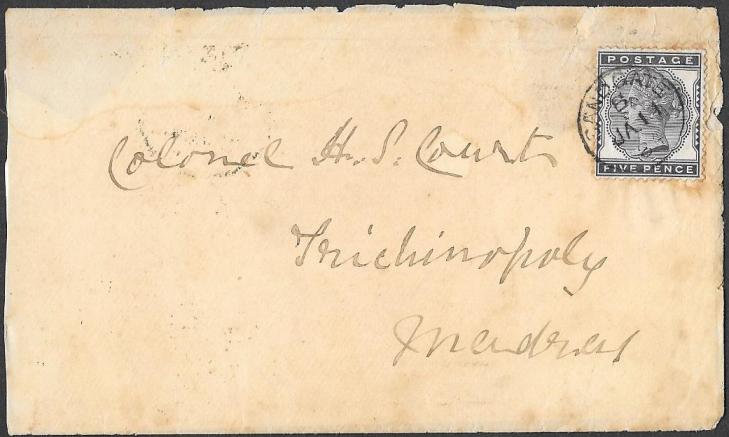 POSTAGE
SANDGATE
JA 14
FIVE PENCE
Colonel H. S. Court
Trichinopoly
Madras